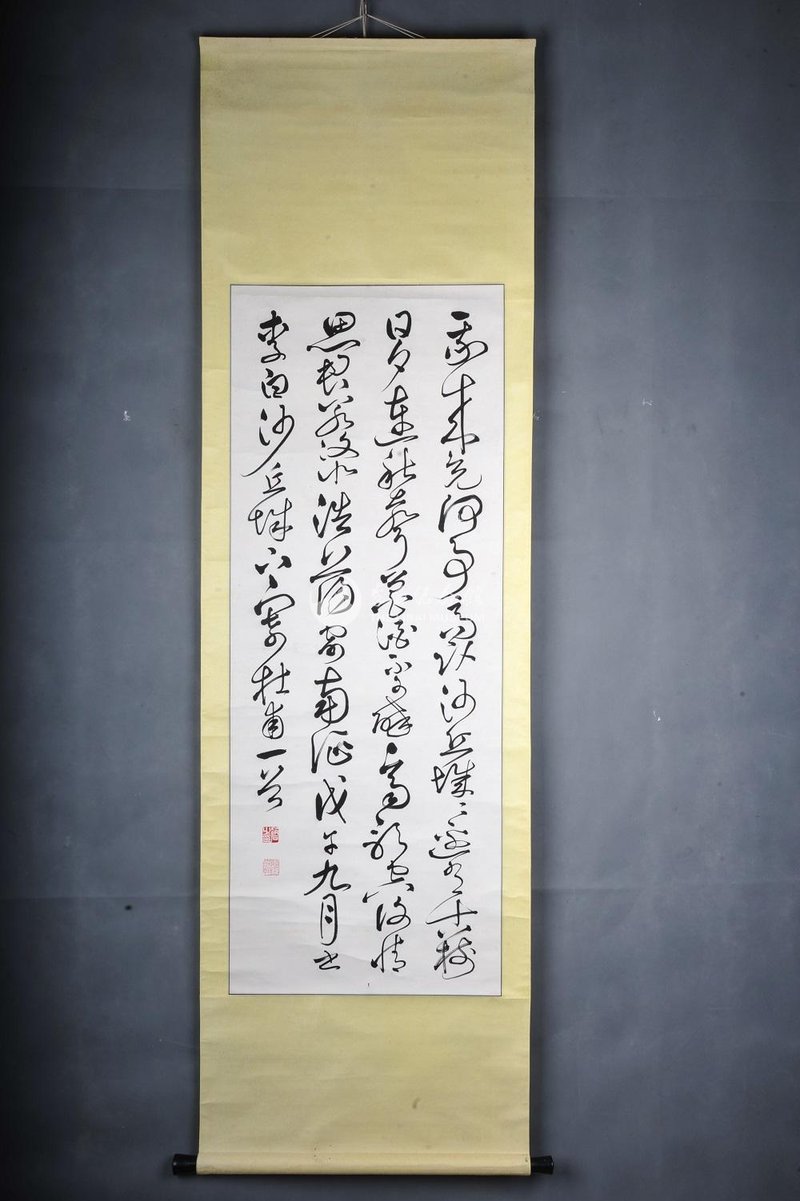 我来竟何事高卧沙丘城〻邊有古樹
日夕連秋聲魯酒不可醉齊歌空復情
思君若汶水浩蕩寄南征戊午九月書
李白沙丘城下寄杜甫一首